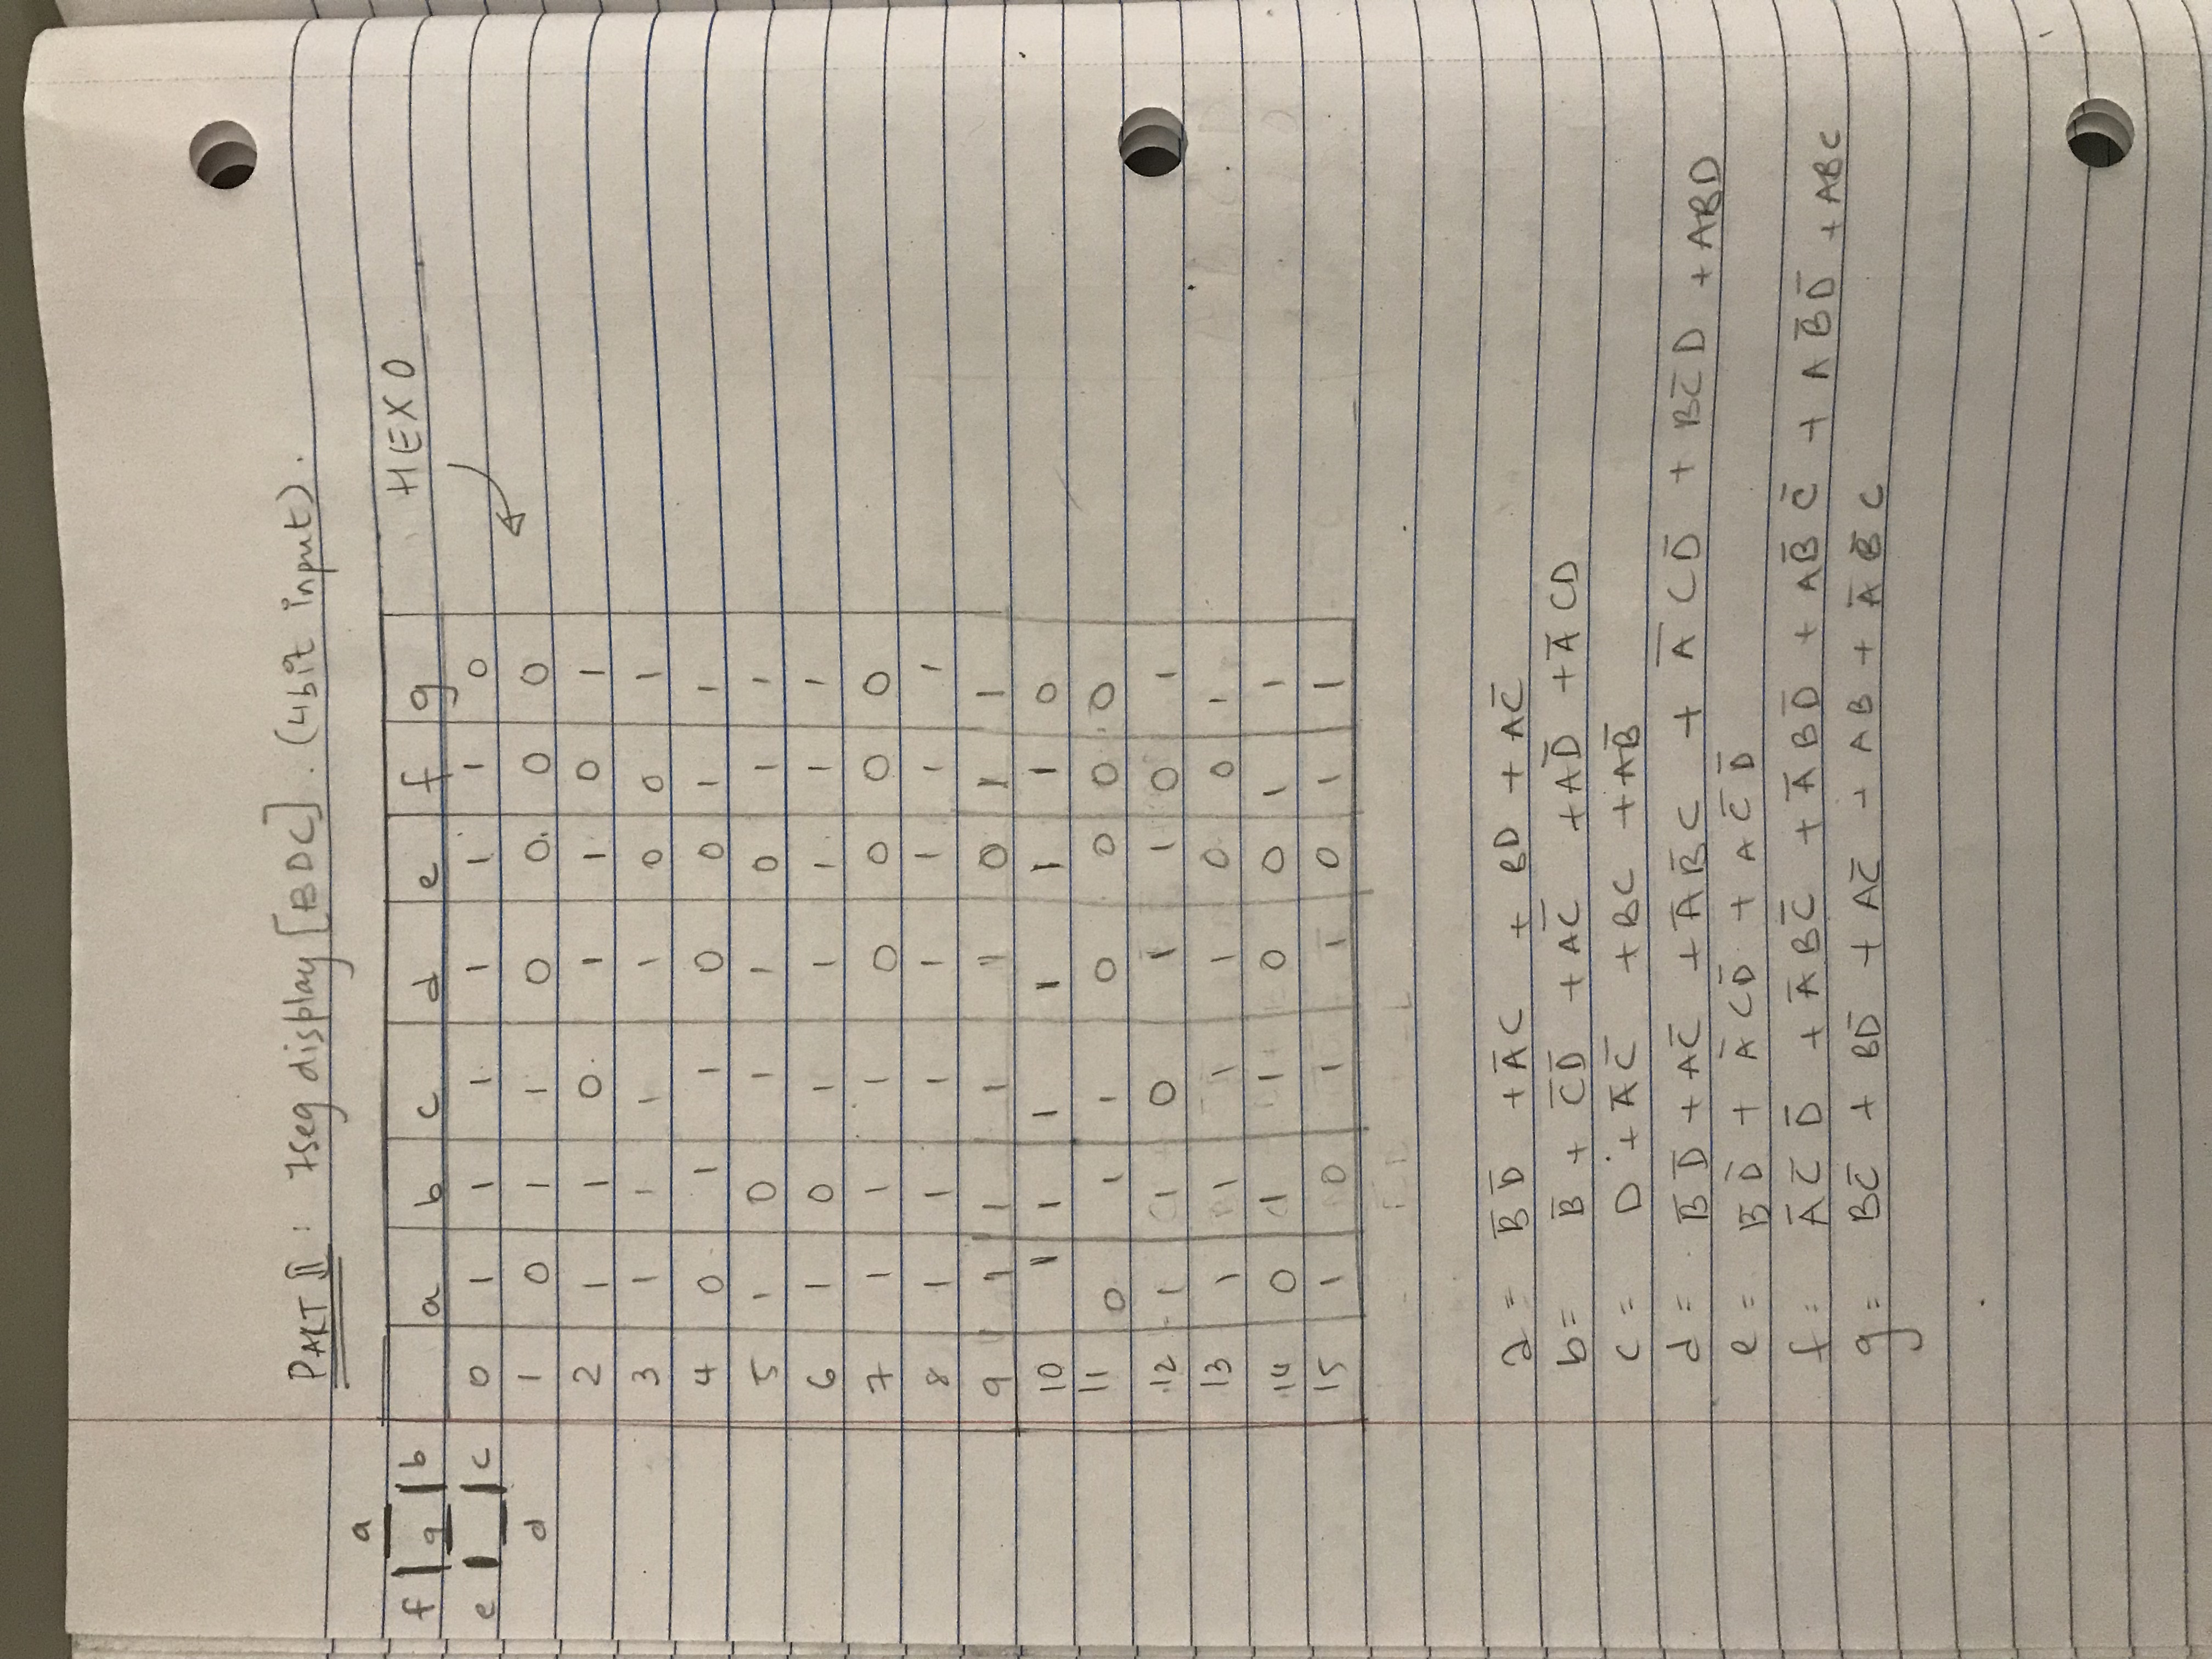 PART II : 7seg display [BDC]. (4bit input).
a
f g b
e c
d
HEX 0
a b c d e f g
0 1 1 1 1 1 1 0
1 0 1 1 0 0 0 0
2 1 1 0 1 1 0 1
3 1 1 1 1 0 0 1
4 0 1 1 0 0 1 1
5 1 0 1 1 0 1 1
6 1 0 1 1 1 1 1
7 1 1 1 0 0 0 0
8 1 1 1 1 1 1 1
9 1 1 1 1 0 1 1
10 1 1 1 1 1 1 0
11 0 1 1 0 0 0 0
12 1 1 0 1 1 0 1
13 1 1 1 1 0 0 1
14 0 1 1 0 0 1 1
15 1 0 1 1 0 1 1
a = B̅ D̅ + A̅ C + BD + AC̅
b = B̅ + C̅ D̅ + AC̅ + AD̅ + A̅ CD
c = D + A̅ C̅ + BC + AB̅
d = B̅ D̅ + AC̅ + A̅ B̅ C + A̅ C D̅ + BC̅ D + ABD
e = B̅ D̅ + A̅ C D̅ + A C̅ D̅
f = A̅ C̅ D̅ + A̅ B C̅ + A̅ B D̅ + A B̅ C̅ + A B̅ D̅ + ABC
g = BC̅ + BD̅ + AC̅ + AB + A̅ B̅ C